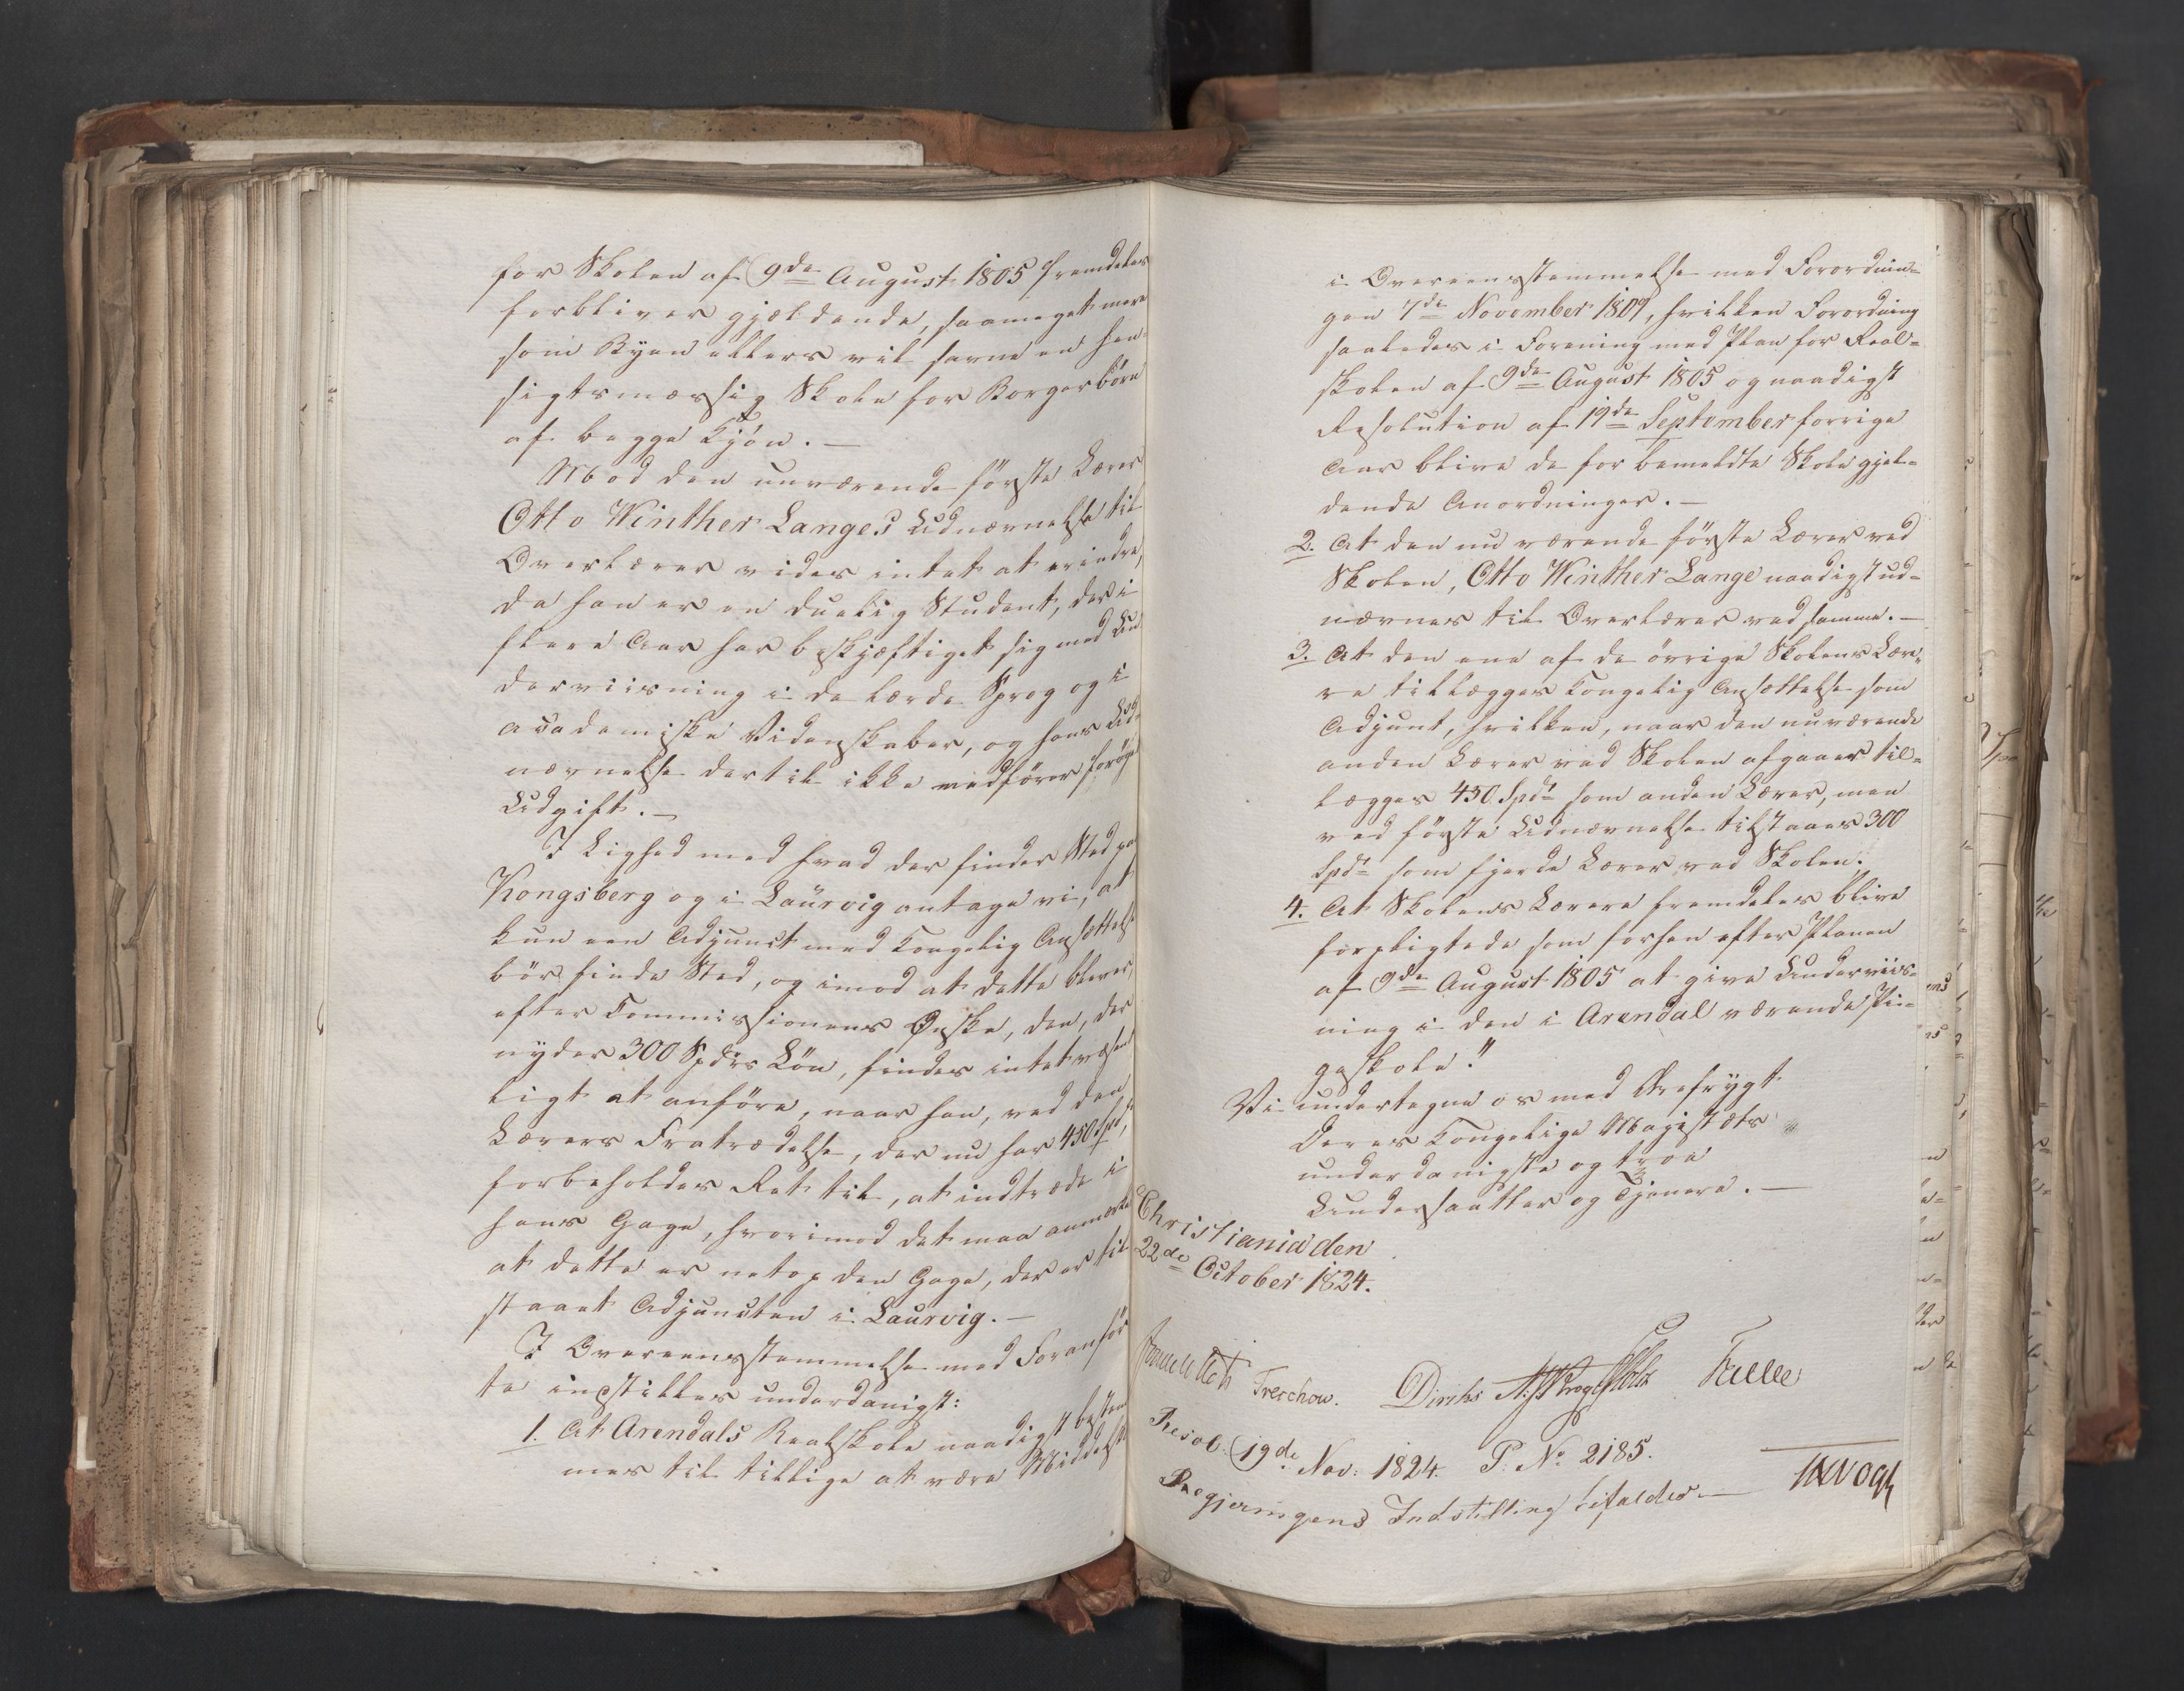 for Skolen af 9de August 1805 fremdeles
forbliver gjældende, saameget mere
som Byen ellers vil savne en hen-
sigtsmæssig Skole for Borgerbörn
af begge Kjön. —
Mod den nuværende förste Lærer
Otto Winther Langes Udnævnelse til
Overlærer vides intet at erindre,
da han er en duelig Student, der i
flere Aar har beskjæftiget sig med Un
derviisning i de lærde Sprog og i
academiske Videnskaber, og hans Ud-
nævnelse dertil ikke medförer foröget
Udgift. —
I Lighed med hvad der finder Sted paa
Kongsberg og i Laurvig antage vi, at
kun een Adjunct med Kongelig Ansættelse
bör finde Sted, og imod at dette bliver,
efter Commissionens Ønske, den, der
nyder 300 Spdrs Lön, findes intet væsent
ligt at anföre, naar han, ved den
Lærers Fratrædelse, der nu har 450 Spd,
forbeholdes Ret til, at indtræde i
hans Gage, hvorimod det maa anmærkes
at dette er netop den Gage, der er til
staaet Adjuncten i Laurvig. —
I Overeensstemmelse med Foranför
te indstilles underdanigst:
1. At Arendals Realskole naadigst bestem
mes til tillige at være Middelskole
i Overeensstemmelse med Forordnin-
gen 7de November 1809, hvilken Forordning
saaledes i Forening med Plan for Real-
skolen af 9de August 1805 og naadigst
Resolution af 19de September forrige
Aar blive de for bemeldte Skole gjel-
dende Anordninger. —
2. At den nu værende förste Lærer ved
Skolen, Otto Winther Lange naadigst ud-
nævnes til Overlærer ved samme. —
3. At den ene af de övrige Skolens Lære-
re tillægges Kongelig Ansættelse som
Adjunt, hvilken, naar den nuværende
anden Lærer ved Skolen afgaaer til-
lægges 450 Spdr som anden Lærer, men
ved förste Udnævnelse tilstaaes 300
Spdr som fjerde Lærer ved Skolen.
4. At Skolens Lærere fremdeles blive
forpligtede som forhen efter Planen
af 9de August 1805 at give Underviis-
ning i den i Arendal værende Pi-
geskole."
Vi undertegne os med Ærefrygt
Deres Kongelige Majestæts
underdanigste og troe
Undersaatter og Tjenere. —
Christiania den
22de October 1824.
Treschow. Diriks Falbe
Resol. 19de Nov: 1824. P. No 2185.
Regjeringens Indstilling bifaldes. — Vogt